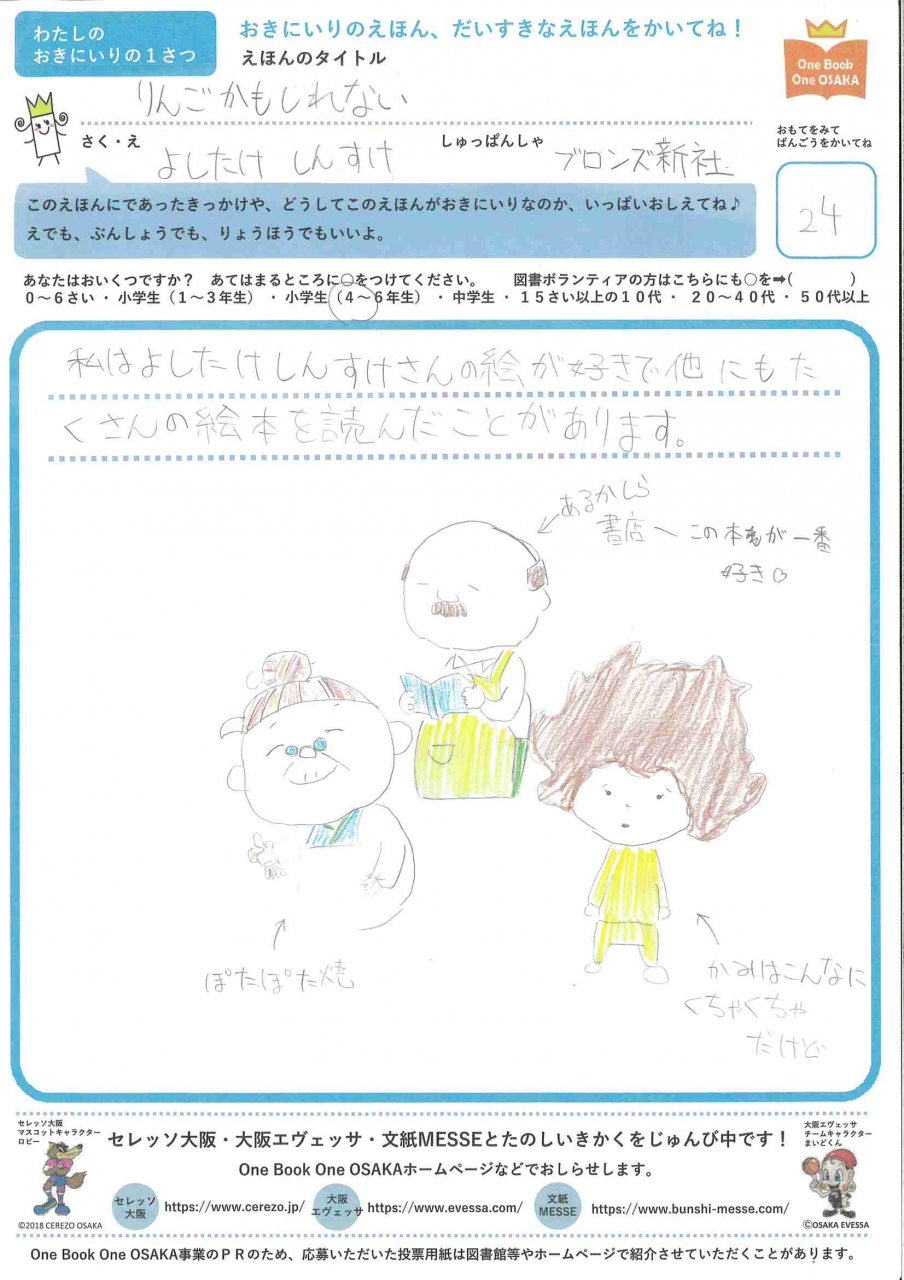 わたしの
おきにいりの1さつ
おきにいりのえほん、だいすきなえほんをかいてね！
えほんのタイトル
りんごかもしれない
One Book
One OSAKA
さく・え
よしたけ しんすけ
しゅっぱんしゃ
ブロンズ新社
おもてをみて
ばんごうをかいてね
24
このえほんにであったきっかけや、どうしてこのえほんがおきにいりなのか、いっぱいおしえてね♪
えでも、ぶんしょうでも、りょうほうでもいいよ。
あなたはおいくつですか？　あてはまるところに○をつけてください。　図書ボランティアの方はこちらにも○を➡(　　　)
0～6さい・小学生（1～3年生）・小学生（4～6年生）・中学生・15さい以上の10代・20～40代・50代以上
私はよしたけしんすけさんの絵が好きで他にもた
くさんの絵本を読んだことがあります。
あるかしら
書店へ
この本が一番
好き♡
ぽたぽた焼
かみはこんなに
くちゃくちゃ
だけど
セレッソ大阪
マスコットキャラクター
ロビー
©2018 CEREZO OSAKA
セレッソ大阪・大阪エヴェッサ・文紙MESSEとたのしいきかくをじゅんび中です！
One Book One OSAKAホームページなどでおしらせします。
セレッソ
大阪
https://www.cerezo.jp/
大阪
エヴェッサ
https://www.evessa.com/
文紙
MESSE
https://www.bunshi-messe.com/
大阪エヴェッサ
チームキャラクター
まいどくん
©OSAKA EVESSA
One Book One OSAKA事業のＰＲのため、応募いただいた投票用紙は図書館等やホームページで紹介させていただくことがあります。